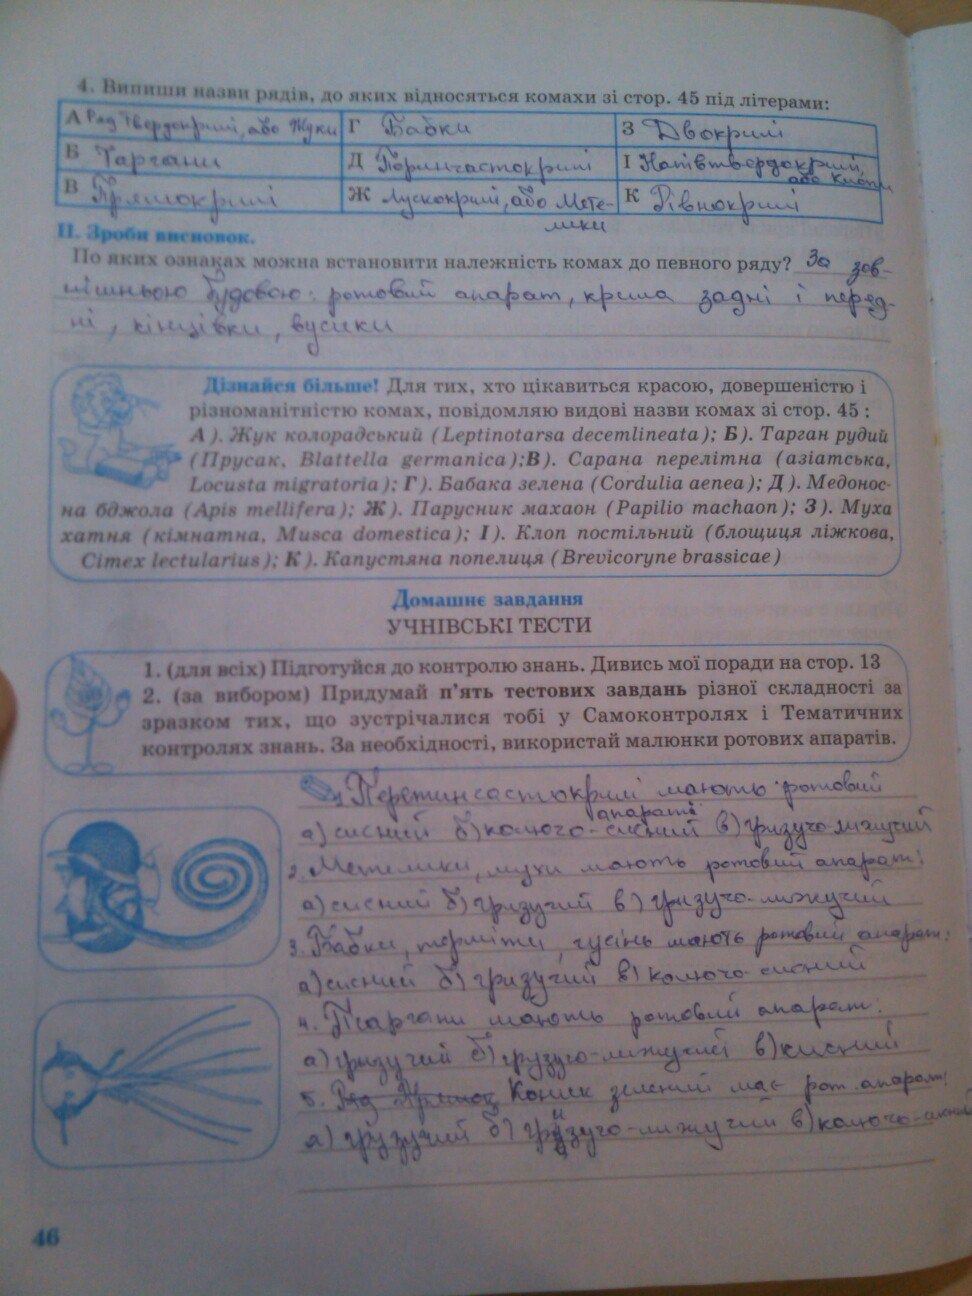 4. Випиши назви рядів, до яких відносяться комахи зі стор. 45 під літерами:
А Ряд Твердокрилі, або Жуки Г Бабки З Двокрилі
Б Таргани Д Перинчастокрилі І Напівтвердокрилі, або Клопи
В Прямокрилі Ж Лускокрилі, або Мете-лики К Рівнокрилі
ІІ. Зроби висновок.
По яких ознаках можна встановити належність комах до певного ряду? За зов-
нішньою будовою: ротовий апарат, крила задні і перед-
ні, кінцівки, вусики
Дізнайся більше! Для тих, хто цікавиться красою, довершеністю і
різноманітністю комах, повідомляю видові назви комах зі стор. 45 :
А ). Жук колорадський (Leptinotarsa decemlineata); Б ). Тарган рудий
(Прусак, Blattella germanica);В ). Сарана перелітна (азіатська,
Locusta migratoria); Г ). Бабака зелена (Cordulia aenea); Д ). Медонос-
на бджола (Apis mellifera); Ж ). Парусник махаон (Papilio machaon); З ). Муха
хатня (кімнатна, Musca domestica); І ). Клоп постільний (блощиця ліжкова,
Cimex lectularius); К ). Капустяна попелиця (Brevicoryne brassicae)
Домашнє завдання
УЧНІВСЬКІ ТЕСТИ
1. (для всіх) Підготуйся до контролю знань. Дивись мої поради на стор. 13
2. (за вибором) Придумай п'ять тестових завдань різної складності за
зразком тих, що зустрічалися тобі у Самоконтролях і Тематичних
контролях знань. За необхідності, використай малюнки ротових апаратів.
1. Перетинчастокрилі мають ротовий
апарат:
а) сисний б) колючо-сисний в) гризучо-лижучий
2. Метелики, мухи мають ротовий апарат:
а) сисний б) гризучий в) гризучо-лижучий
3. Бабки, терміти, гусінь мають ротовий апарат:
а) сисний б) гризучий в) колючо-сисний
4. Таргани мають ротовий апарат:
а) гризучий б) грузучо-лижучий в) сисний
5. Коник зелений має рот. апарат:
а) гризучий б) гризучо-лижучий в) колючо-сисний
46